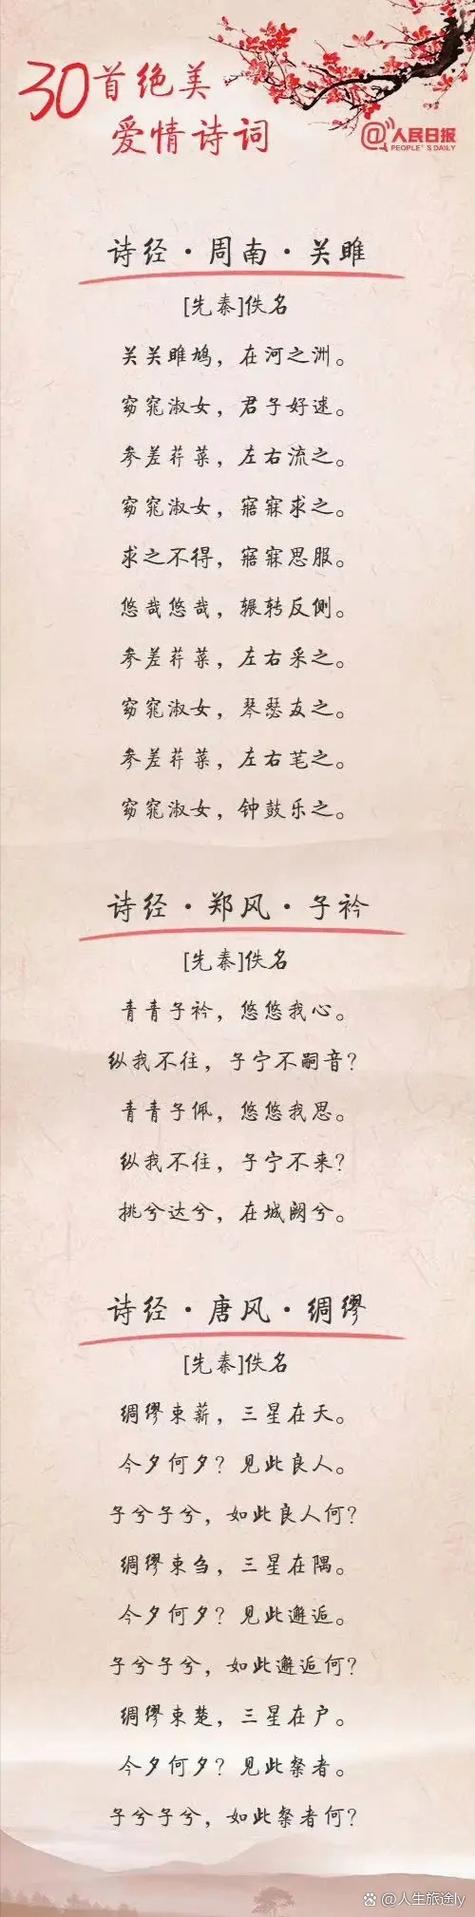 30首绝美
爱情诗词
@人民日报
PEOPLE'S DAILY
诗经·周南·关雎
[先秦]佚名
关关雎鸠，在河之洲。
窈窕淑女，君子好逑。
参差荇菜，左右流之。
窈窕淑女，寤寐求之。
求之不得，寤寐思服。
悠哉悠哉，辗转反侧。
参差荇菜，左右采之。
窈窕淑女，琴瑟友之。
参差荇菜，左右芼之。
窈窕淑女，钟鼓乐之。
诗经·郑风·子衿
[先秦]佚名
青青子衿，悠悠我心。
纵我不往，子宁不嗣音？
青青子佩，悠悠我思。
纵我不往，子宁不来？
挑兮达兮，在城阙兮。
诗经·唐风·绸缪
[先秦]佚名
绸缪束薪，三星在天。
今夕何夕？见此良人。
子兮子兮，如此良人何？
绸缪束刍，三星在隅。
今夕何夕？见此邂逅。
子兮子兮，如此邂逅何？
绸缪束楚，三星在户。
今夕何夕？见此粲者。
子兮子兮，如此粲者何？
@人生旅途ly